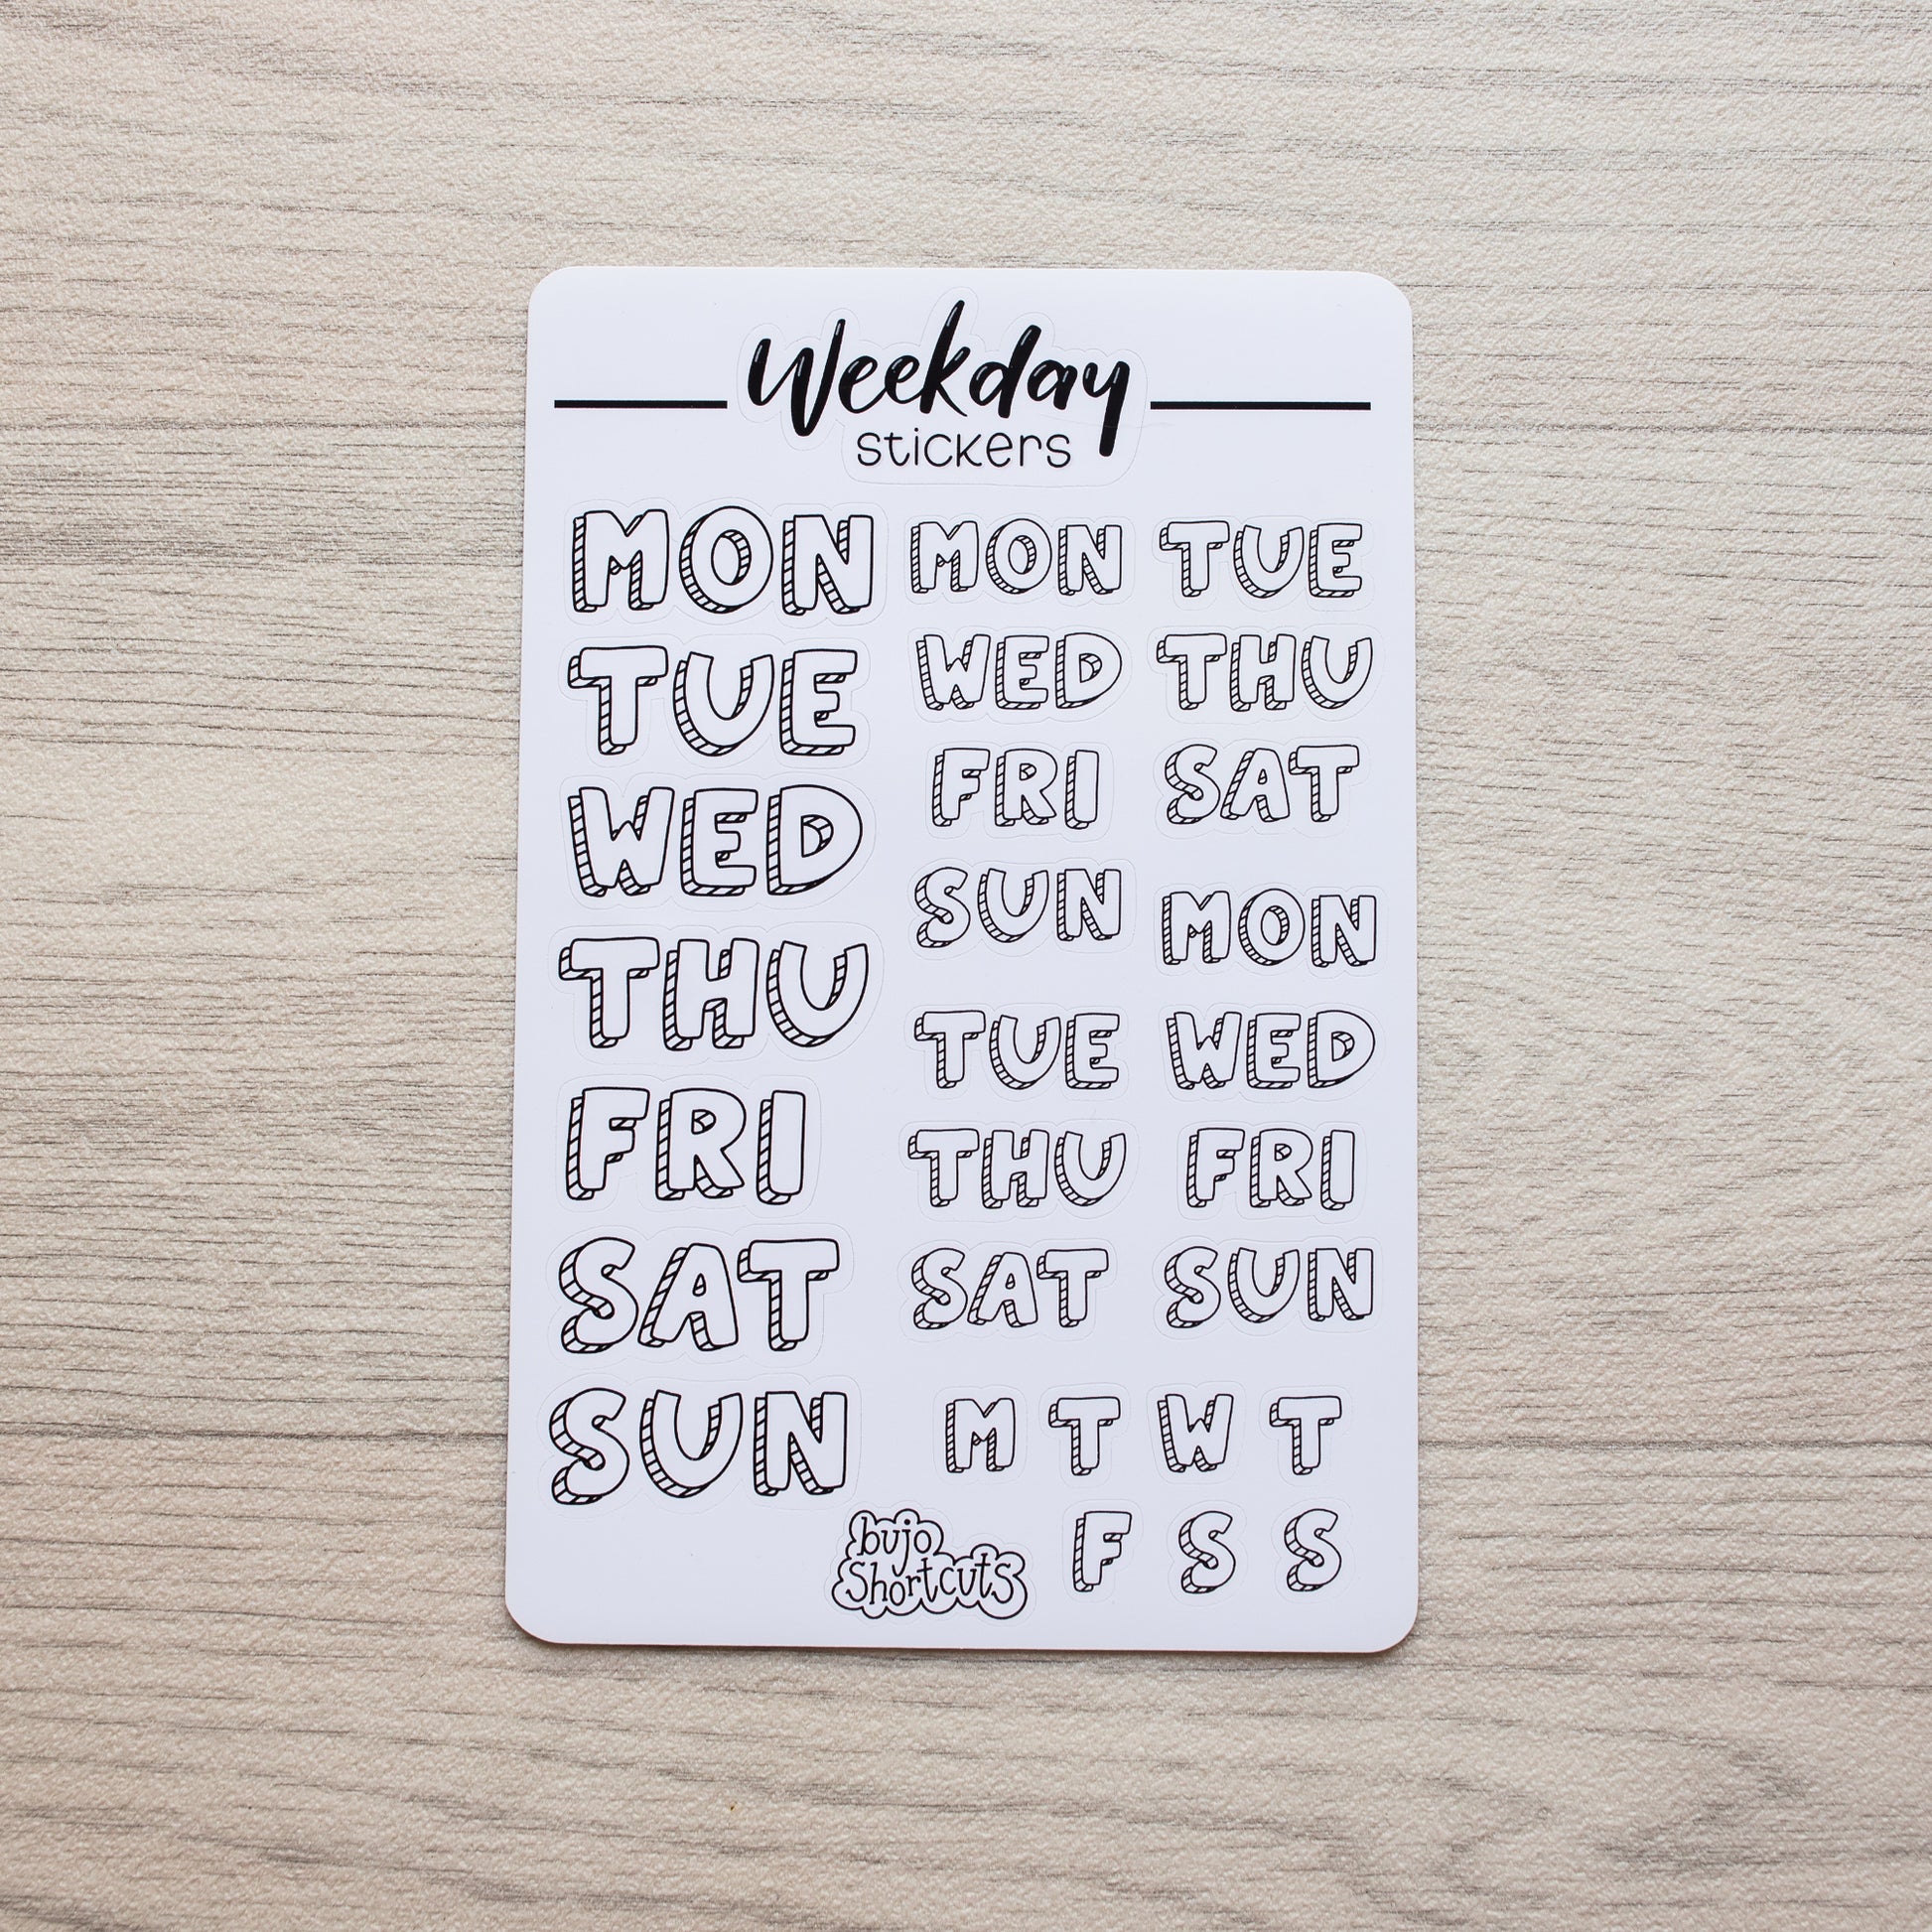 Weekday
stickers
MON
TUE
WED
THU
FRI
SAT
SUN
MON TUE
WED THU
FRI SAT
SUN
MON
TUE WED
THU FRI
SAT SUN
M T W T
F S S
bujo
shortcuts